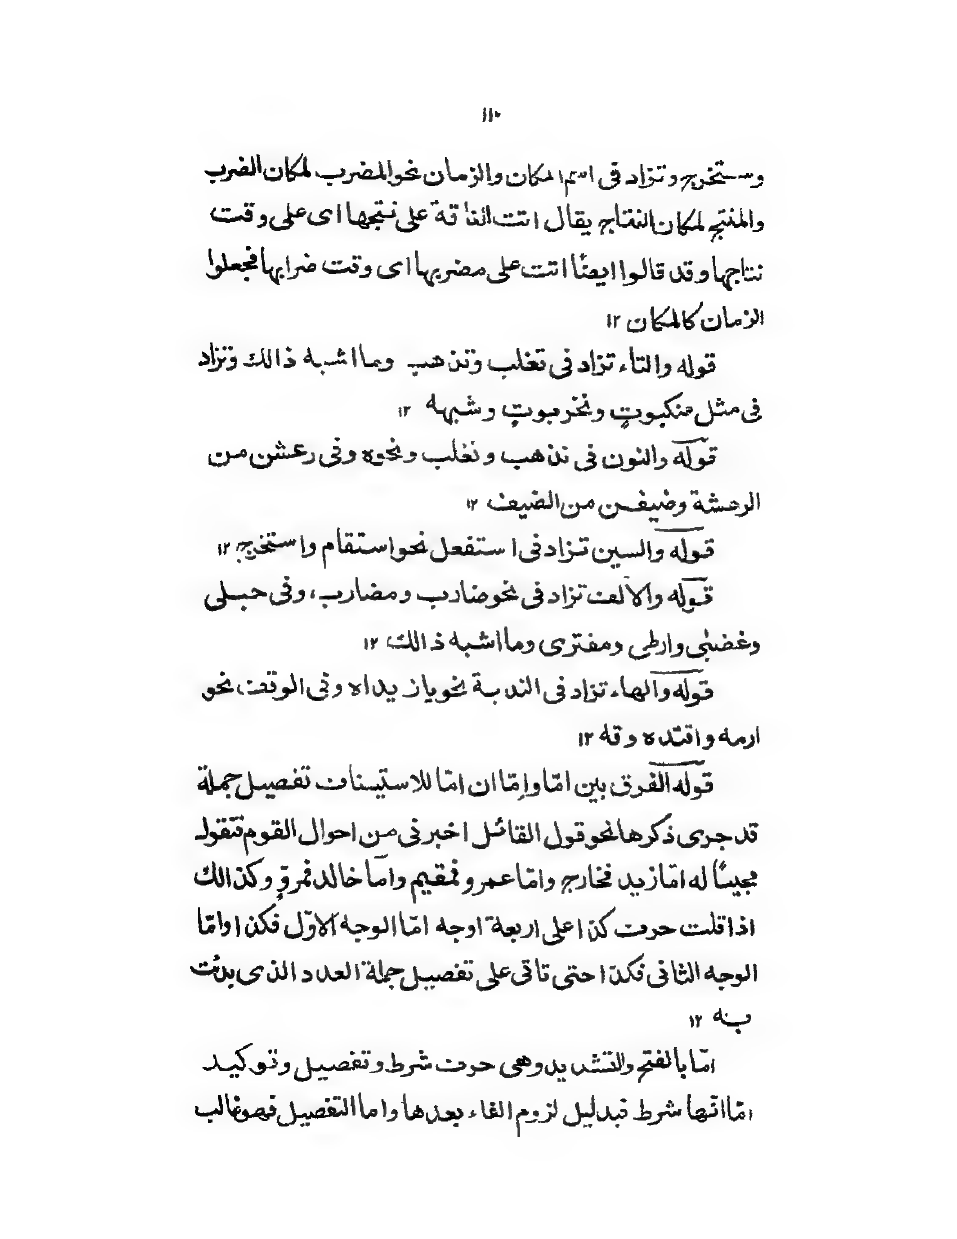 ١١٠
وستخرج وتزاد فى اسم المكان والزمان نحو المضرب لمكان الضرب
والمنتج لمكان النتاج يقال اتت الناقة على نتجها اى على وقت
نتاجها وقد قالوا ايضًا اتت على مضربها اى وقت ضرابها فجعلوا
الزمان كالمكان ١٢
قوله والتاء تزاد فى تغلب وتذهب وما اشبه ذالك وتزاد
فى مثل عنكبوتٍ ونخربوتٍ وشبهه ١٢
قوله والنون فى نذهب ونغلب ونحوه وفى رعشن من
الرعشة وضيفن من الضيف ١٢
قوله والسين تزاد فى استفعل نحو استقام واستخرج ١٢
قوله والالف تزاد فى نحو ضارب ومضارب، وفى حبلى
وغضبٰى وارطى ومفترى وما اشبه ذالك ١٢
قوله والهاء تزاد فى الندبة نحو يازيداه وفى الوقف نحو
ارمه واقتده وقه ١٢
قوله الفرق بين امّا وإمّا ان امّا للاستيناف تفصيل جملة
قد جرى ذكرها نحو قول القائل اخبرنى من احوال القوم فتقول
مجيبًا له امّا زيد فخارج وامّا عمرو فمقيم وامّا خالد فمروٍّ وكذالك
اذا قلت حرف كذا على اربعة اوجه امّا الوجه الاوّل فكذا وامّا
الوجه الثانى فكذا حتى تاتى على تفصيل جملة العدد الذى بدئت
به ١٢
امّا بالفتح والتشديد وهى حرف شرط وتفصيل وتوكيد
امّا انّها شرط فبدليل لزوم الفاء بعدها واما التفصيل فهو غالب